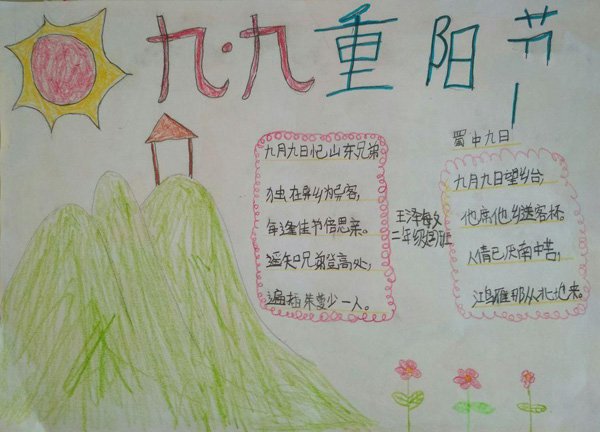 九·九重阳节
九月九日忆山东兄弟
独在异乡为异客,
每逢佳节倍思亲。
遥知兄弟登高处,
遍插茱萸少一人。
王泽
二年级四班
蜀中九日
九月九日望乡台,
他席他乡送客杯。
人情已厌南中苦,
鸿雁那从北地来。